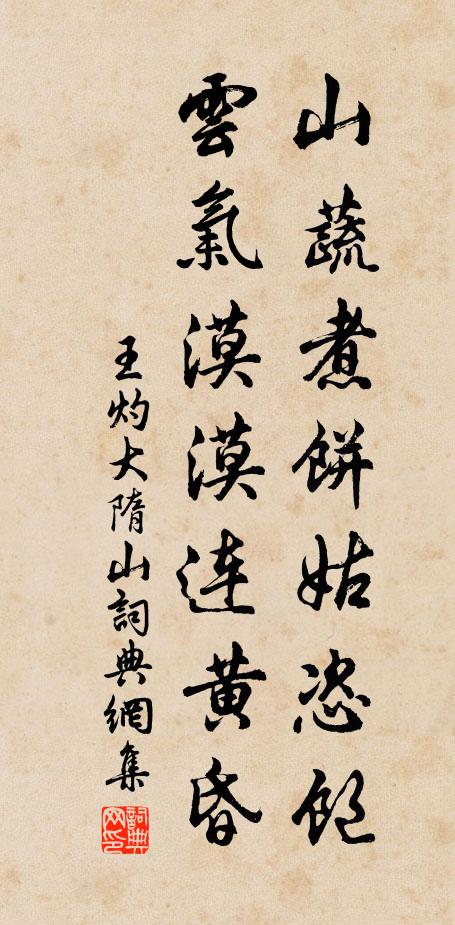 山蔬煮餅姑恣飽
雲氣漠漠連黄昏
王灼大隋山詞典網集
詞典网印